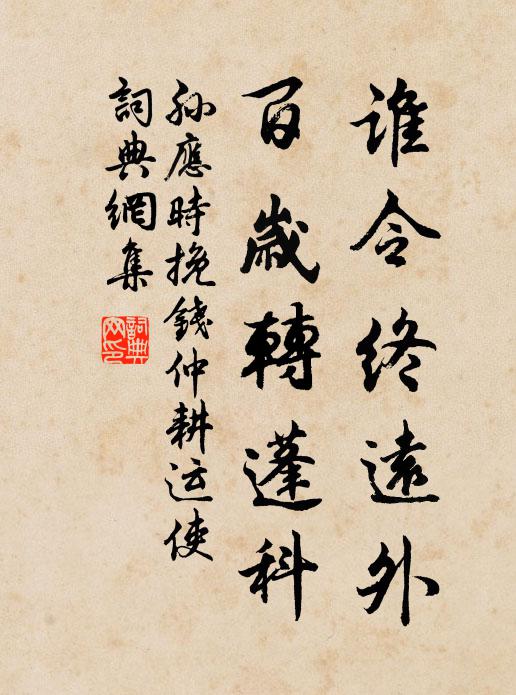 谁令终遠外
百歲轉蓬科
孙應時挽錢仲耕运使
詞典網集
詞典
网印